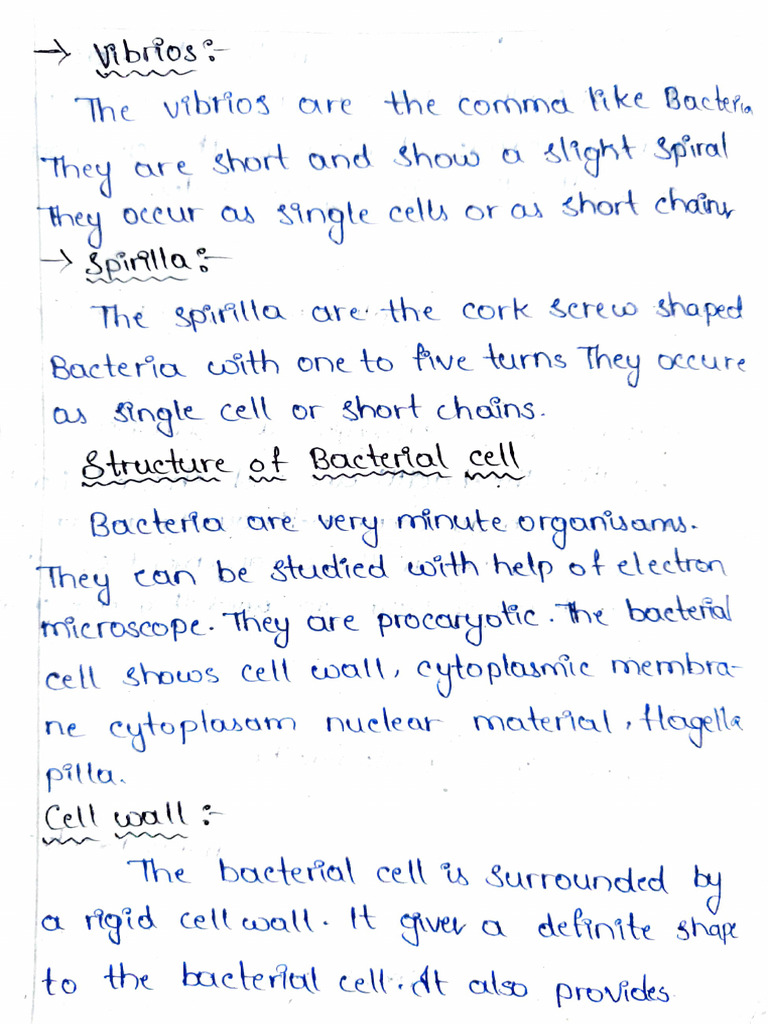 → Vibrios:-
The vibrios are the comma like Bacteria
They are short and show a slight spiral
They occur as single cells or as short chains
→ Spirilla:-
The spirilla are the cork screw shaped
Bacteria with one to five turns They occure
as single cell or short chains.
Structure of Bacterial cell
Bacteria are very minute organisams.
They can be studied with help of electron
microscope. They are procaryotic. The bacterial
cell shows cell wall, cytoplasmic membra-
ne cytoplasam nuclear material, flagella
pilla.
Cell wall :-
The bacterial cell is surrounded by
a rigid cell wall. It gives a definite shape
to the bacterial cell. It also provides